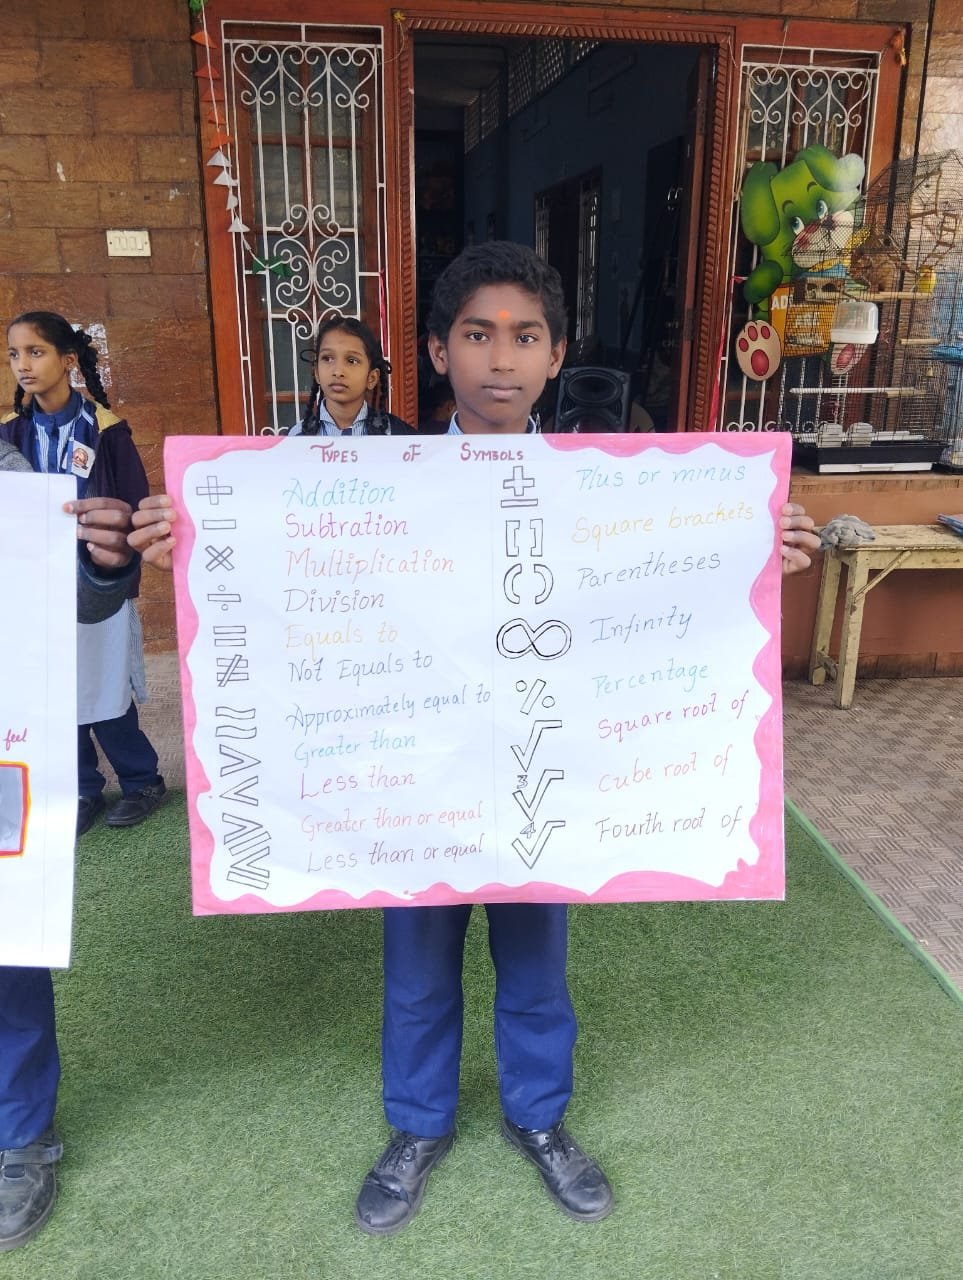 TYPES OF SYMBOLS
+ Addition
− Subtration
× Multiplication
÷ Division
= Equals to
≠ Not Equals to
≈ Approximately equal to
> Greater than
< Less than
≥ Greater than or equal
≤ Less than or equal
± Plus or minus
[ ] Square brackets
( ) Parentheses
∞ Infinity
% Percentage
√ Square root of
∛ Cube root of
∜ Fourth root of
feel